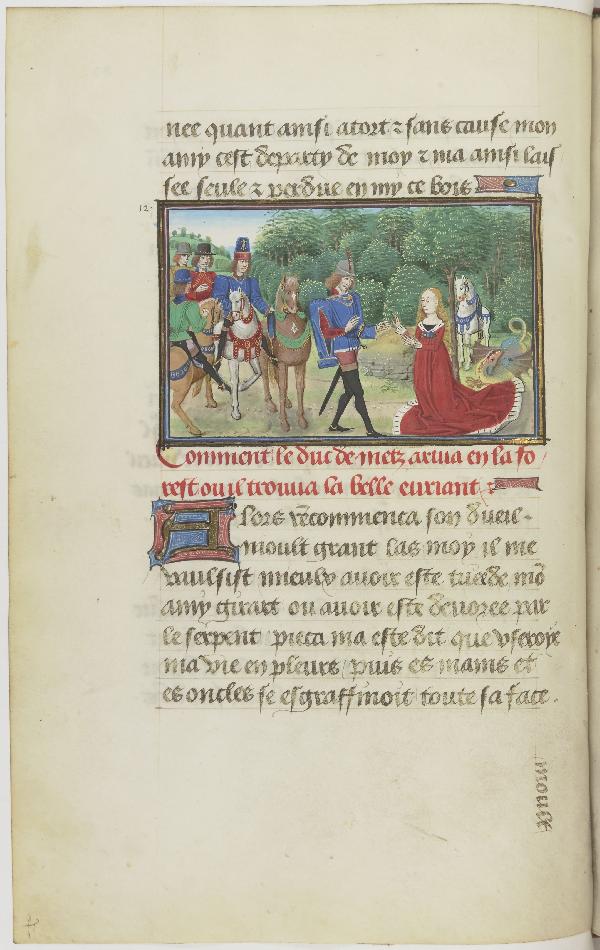 nee quant ainsi a tort ⁊ sans cause mon
amy cest departy de moy ⁊ ma ainsi lais
see seule ⁊ perdue en my ce bois
12.
Comment le duc de metz ariua en la fo
rest ou il trouua la belle euriant ⁊
Alors recommenca son dueil
moult grant las moy il me
vaulsist mieulx auoir este tuee de mō
amy girart ou auoir este deuoree par
le serpent pieca ma este dit que vseroye
ma vie en pleurs puis es mains et
es oncles se esgraffinoit toute sa face.
moult